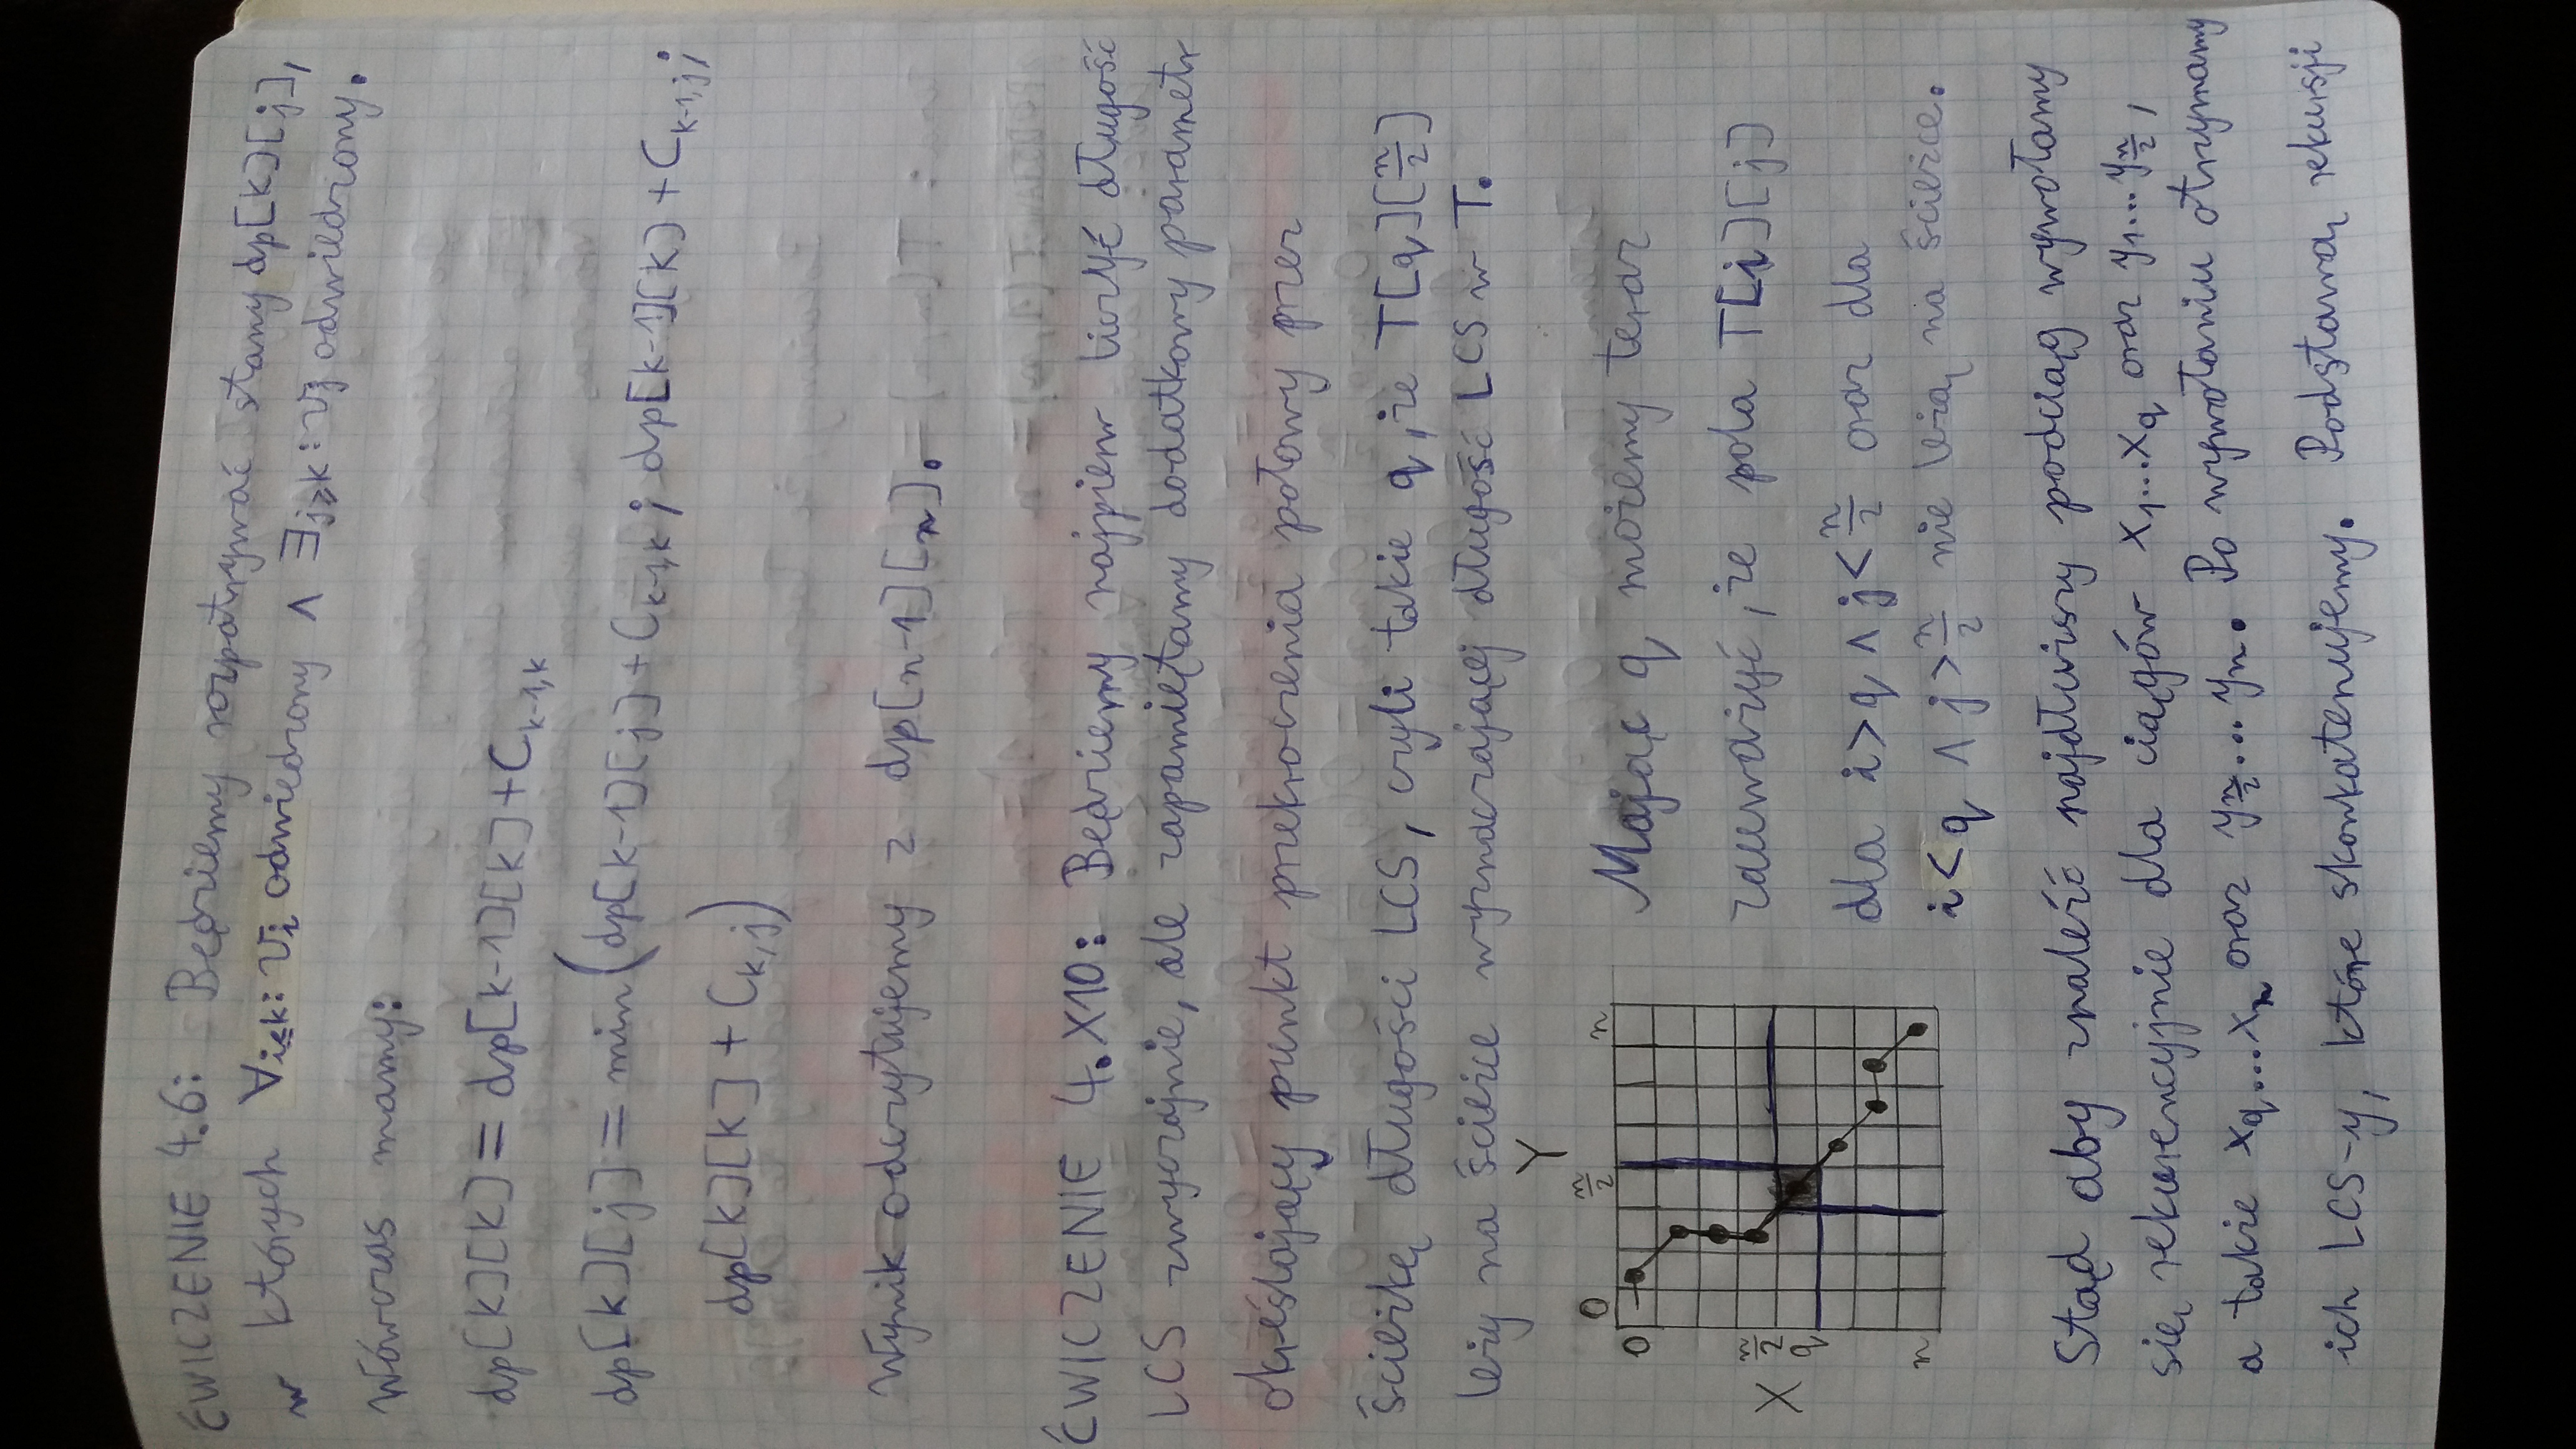 ĆWICZENIE 4.6: Będziemy rozpatrywać stany dp[k][j],
w których ∀i≤k: vi odwiedzony ∧ ∃j≥k: vj odwiedzony.
Wówczas mamy:
dp[k][k] = dp[k-1][k] + C_{k-1,k}
dp[k][j] = min(dp[k-1][j] + C_{k-1,k}; dp[k-1][k] + C_{k-1,j};
dp[k][k] + C_{k,j})
Wynik odczytujemy z dp[n-1][n].
ĆWICZENIE 4.X10: Będziemy najpierw liczyć długość
LCS zwyczajnie, ale zapamiętamy dodatkowy parametr
określający punkt przekroczenia połowy przez
ścieżkę długości LCS, czyli takie q, że T[q][n/2]
leży na ścieżce wyznaczającej długość LCS w T.
Y
0 n/2 n
0
X n/2
q
n
Mając q możemy teraz
zauważyć, że pola T[i][j]
dla i>q ∧ j<n/2 oraz dla
i<q ∧ j>n/2 nie leżą na ścieżce.
Stąd aby znaleźć najdłuższy podciąg wywołamy
się rekurencyjnie dla ciągów x1...xq oraz y1...yn/2,
a także xq...xn oraz yn/2...yn. Po wywołaniu otrzymamy
ich LCS-y, które skonkatenujemy. Podstawą rekursji